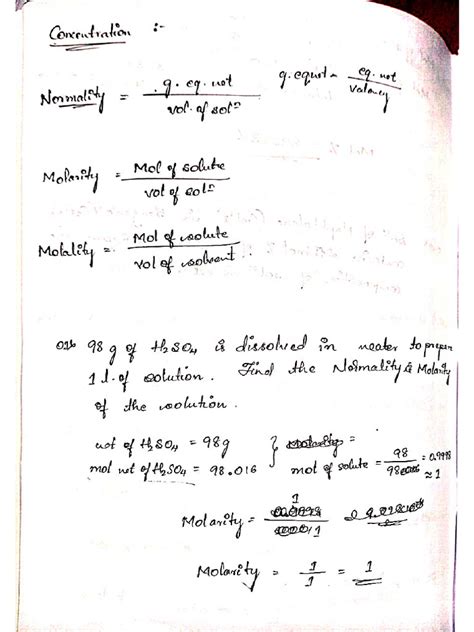 Concentration :-
Normality = g. eq. wt / vol. of solⁿ g. eqwt = eq. wt / Valency
Molarity = Mol of solute / vol of solⁿ
Molality = Mol of solute / vol of solvent
98 g of H2SO4 is dissolved in water to prepare
1 l. of solution. Find the Normality & Molarity
of the solution.
wt of H2SO4 = 98g } Molarity =
mol wt of H2SO4 = 98.016 mol of solute = 98 / 98.016 = 0.9998 ≈ 1
Molarity = 1 / 1
Molarity = 1 / 1 = 1